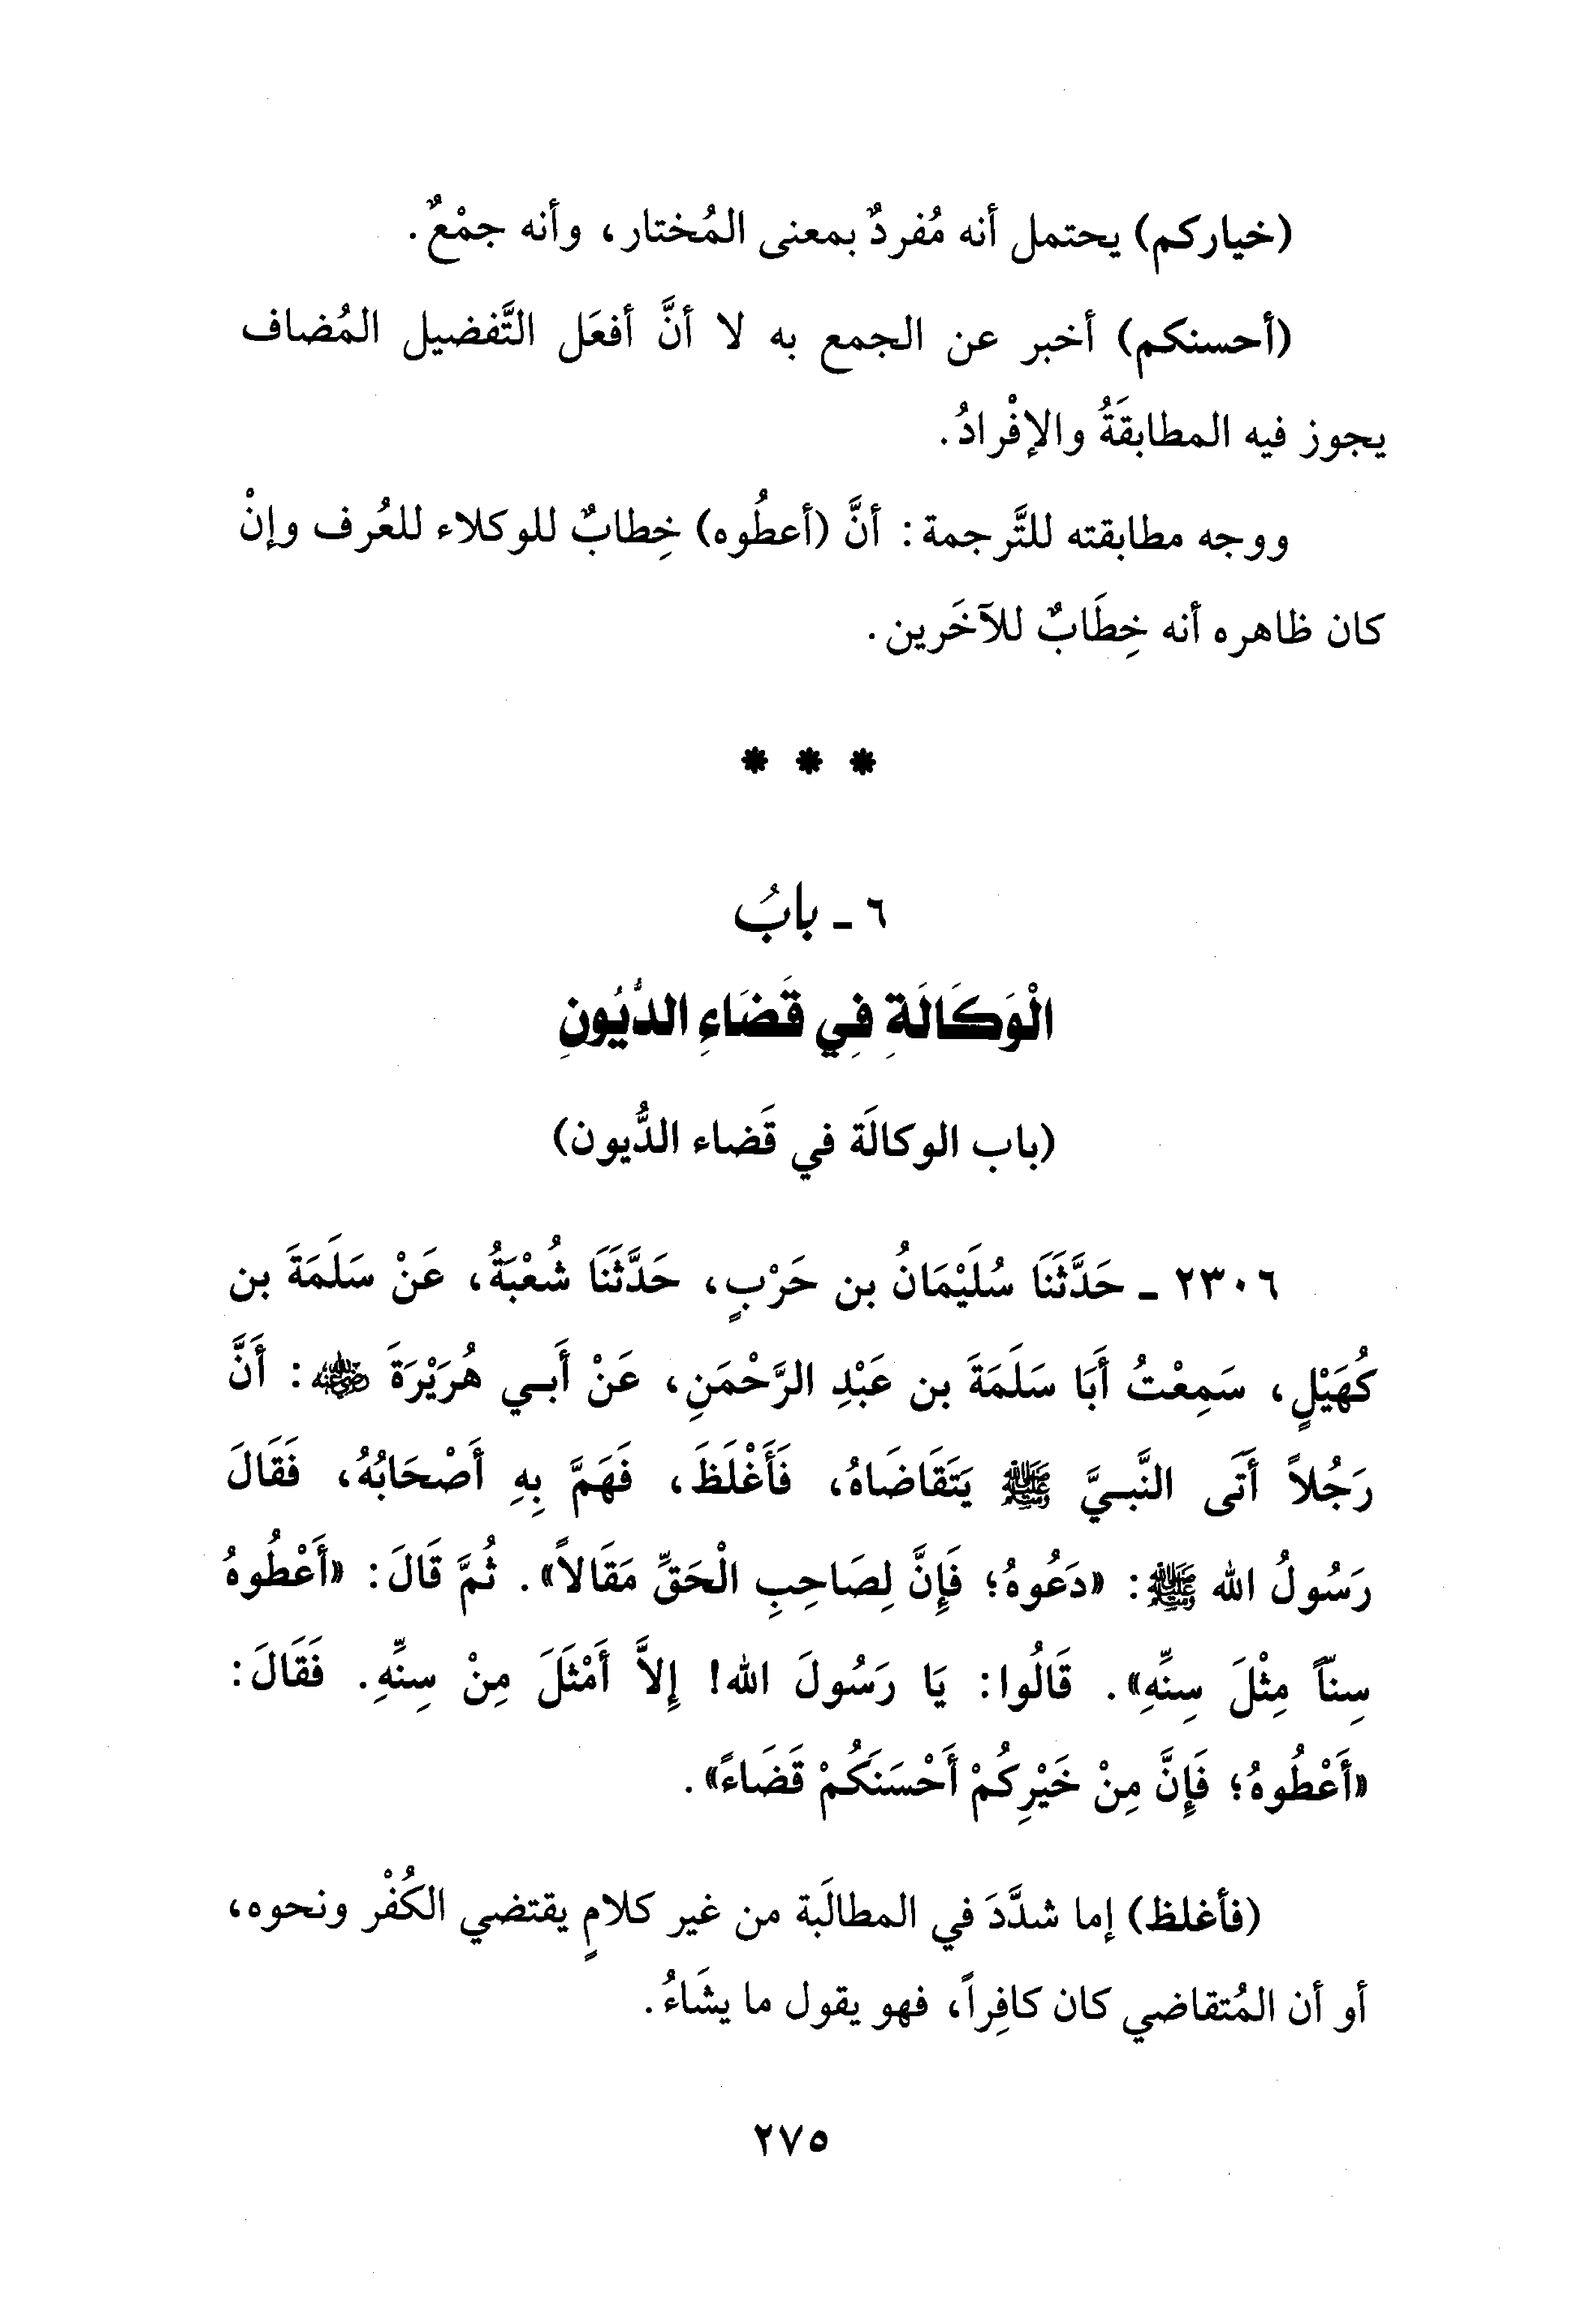 (خياركم) يحتمل أنه مُفردٌ بمعنى المُختار، وأنه جمْعٌ.
(أحسنكم) أخبر عن الجمع به لا أنَّ أفعَل التَّفضيل المُضاف
يجوز فيه المطابقَةُ والإفْرادُ.
ووجه مطابقته للتَّرجمة: أنَّ (أعطُوه) خِطابٌ للوكلاء للعُرف وإنْ
كان ظاهره أنه خِطَابٌ للآخَرين.
* * *
٦ - بابُ
الْوَكَالَةِ فِي قَضَاءِ الدُّيُونِ
(باب الوكالَة في قَضاء الدُّيون)
٢٣٠٦ - حَدَّثَنَا سُلَيْمَانُ بن حَرْبٍ، حَدَّثَنَا شُعْبَةُ، عَنْ سَلَمَةَ بن
كُهَيْلٍ، سَمِعْتُ أَبَا سَلَمَةَ بن عَبْدِ الرَّحْمَنِ، عَنْ أَبي هُرَيْرَةَ رضي الله عنه: أَنَّ
رَجُلاً أَتَى النَّبيَّ ﷺ يَتَقَاضَاهُ، فَأَغْلَظَ، فَهَمَّ بِهِ أَصْحَابُهُ، فَقَالَ
رَسُولُ الله ﷺ: «دَعُوهُ؛ فَإِنَّ لِصَاحِبِ الْحَقِّ مَقَالاً». ثُمَّ قَالَ: «أَعْطُوهُ
سِنّاً مِثْلَ سِنِّهِ». قَالُوا: يَا رَسُولَ الله! إِلاَّ أَمْثَلَ مِنْ سِنِّهِ. فَقَالَ:
«أَعْطُوهُ؛ فَإِنَّ مِنْ خَيْرِكُمْ أَحْسَنَكُمْ قَضَاءً».
(فأغلظ) إما شدَّدَ في المطالَبة من غير كلامٍ يقتضي الكُفْر ونحوه،
أو أن المُتقاضي كان كافِراً، فهو يقول ما يشَاءُ.
٢٧٥